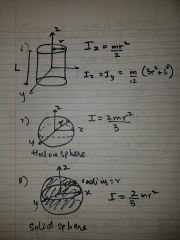 6)
z
r
L
x
y
Iz = mr²/2
Ix = Iy = m/12 (3r² + l²)
7)
z
r
x
y
I = 2mr²/3
Hollow sphere
8)
z
radius = r
x
y
I = 2/5 mr²
Solid sphere